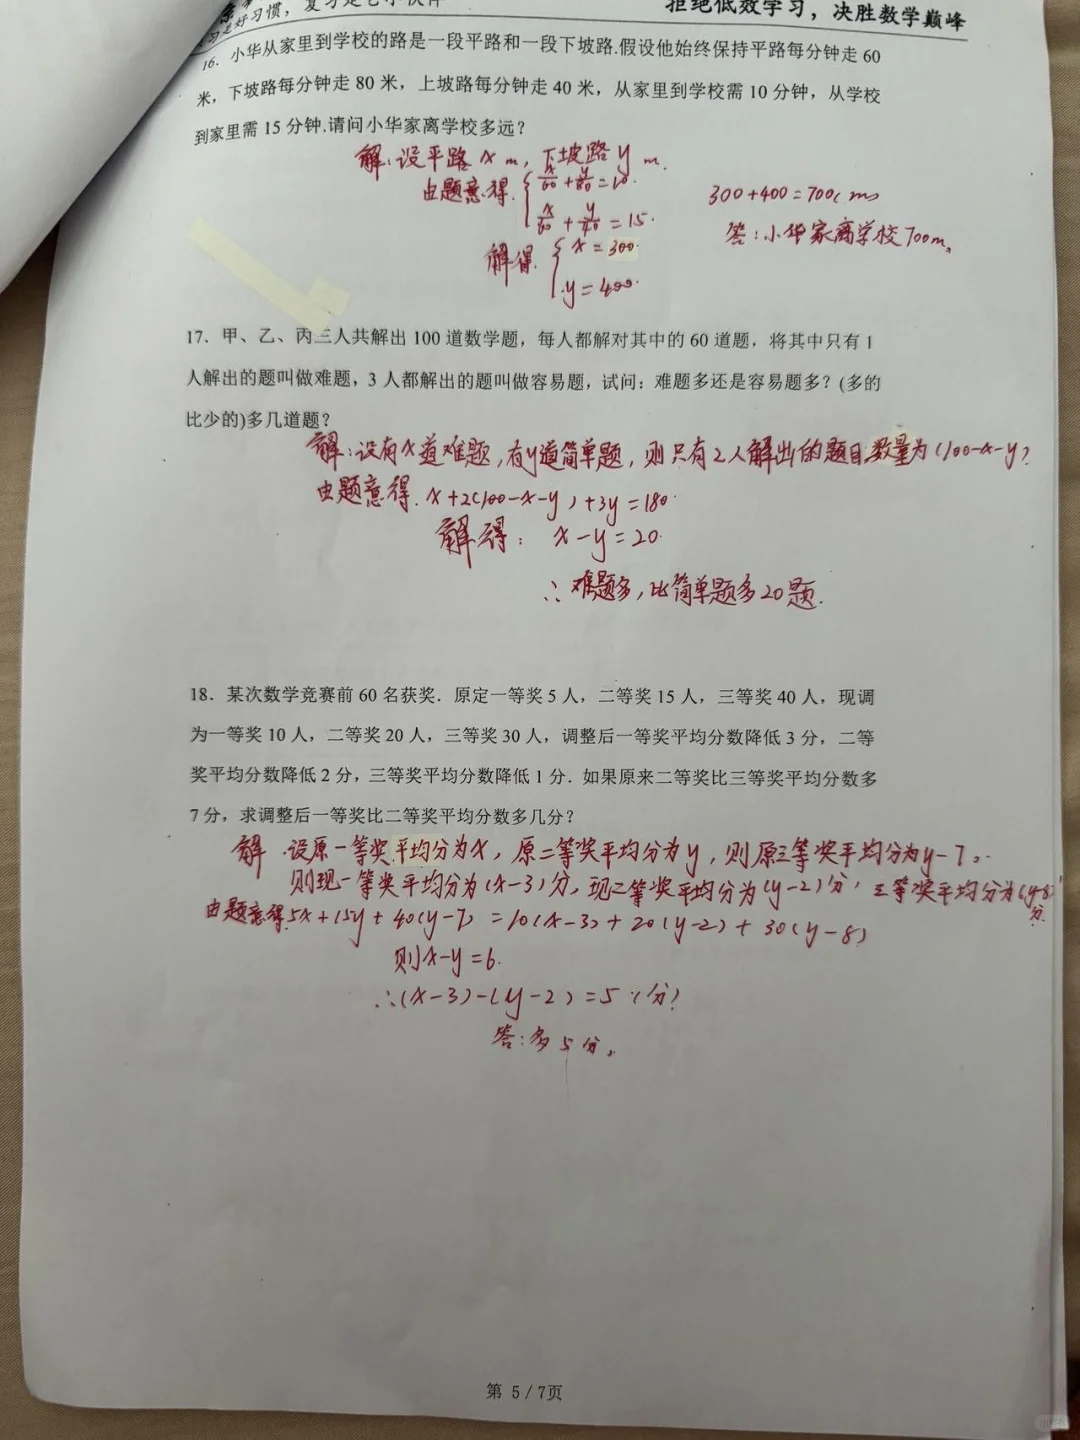 好习惯，复习是
拒绝低效学习，决胜数学巅峰
16．小华从家里到学校的路是一段平路和一段下坡路.假设他始终保持平路每分钟走 60
米，下坡路每分钟走 80 米，上坡路每分钟走 40 米，从家里到学校需 10 分钟，从学校
到家里需 15 分钟.请问小华家离学校多远？
解：设平路 x m，下坡路 y m.
由题意得 { x/60 + y/80 = 10.
x/60 + y/40 = 15.
解得. { x = 300.
y = 400.
300+400=700(m)
答：小华家离学校700m。
17．甲、乙、丙三人共解出 100 道数学题，每人都解对其中的 60 道题，将其中只有 1
人解出的题叫做难题，3 人都解出的题叫做容易题，试问：难题多还是容易题多？(多的
比少的)多几道题？
解：设有x道难题，有y道简单题，则只有2人解出的题目数量为(100-x-y)
由题意得. x+2(100-x-y)+3y=180.
解得： x-y=20.
∴难题多，比简单题多20题.
18．某次数学竞赛前 60 名获奖．原定一等奖 5 人，二等奖 15 人，三等奖 40 人，现调
为一等奖 10 人，二等奖 20 人，三等奖 30 人，调整后一等奖平均分数降低 3 分，二等
奖平均分数降低 2 分，三等奖平均分数降低 1 分．如果原来二等奖比三等奖平均分数多
7 分，求调整后一等奖比二等奖平均分数多几分？
解.设原一等奖平均分为x，原二等奖平均分为y，则原三等奖平均分为y-7。
则现一等奖平均分为(x-3)分，现二等奖平均分为(y-2)分，三等奖平均分为(y-8)分.
由题意得.5x+15y+40(y-7)=10(x-3)+20(y-2)+30(y-8)
则x-y=6.
∴(x-3)-(y-2)=5(分)
答：多5分。
第 5 / 7页